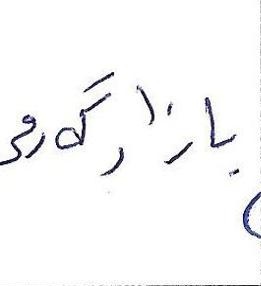 بازارگرمی